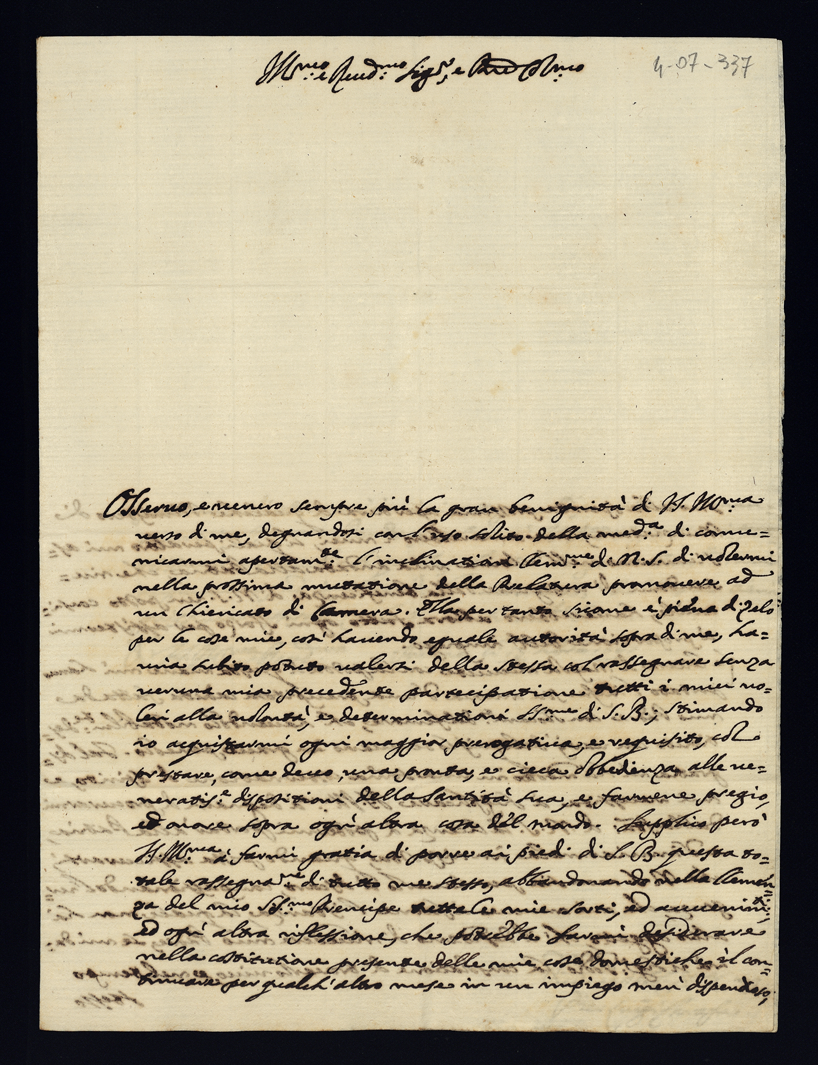 Ill.mo e Reud.mo Sig.r, e Pad.ne Col.mo
4-07-337
Osseruo, e uenero sempre più la gran benignità di V.S. Ill.ma
uerso di me, degnandosi coll'uso solito della med.a di comu=
nicarmi apertam.te l'inclination Clem.me di N. S. di uolermi
nella prossima mutatione della Prelatura promouere ad
un Chiericato di Camera. Ella per tanto sicome è piena di zelo
per le cose mie, così hauendo eguale autorità sopra di me, ha=
uria subito potuto ualersi della stessa col rassegnare senza
ueruna mia precedente partecipatione tutti i miei uo=
leri alla uolontà, e determinationi ss.me di S. B., stimando
io acquistarmi ogni maggior prerogatiua, e requisito, col
prestare, come deuo, una pronta, e cieca obbedienza alle ue=
neratis.e dispositioni della Santità Sua, e farmene pregio,
ed onore sopra ogni altra cosa del mondo. Supplico però
V.S. Ill.ma à farmi gratia di porre ai piedi di S. B. questa to=
tale rassegna.ne di tutto me stesso, abbandonando nella Clemen=
za del mio SS.mo Prencipe tutte le mie sorti, ed auuenim.ti,
ed ogni altra riflessione, che potrebbe farmi desiderare
nella costitutione presente delle mie cose domestiche il con=
tinuare per qualch'altro mese in un impiego men dispendioso,